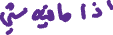 اذا مافيه شي